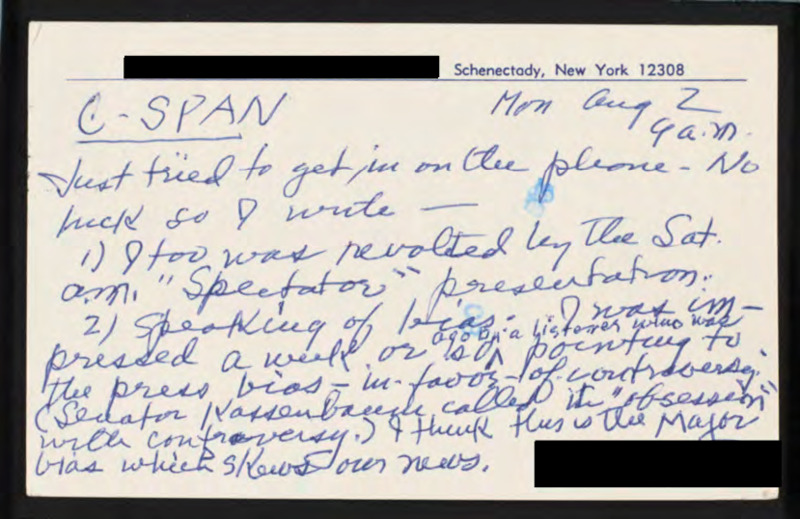 Schenectady, New York 12308
C-SPAN
Mon Aug 2
9 a.m.
Just tried to get in on the phone - No
luck so I write —
1) I too was revolted by the Sat.
a.m. "Spectator" presentation.
2) Speaking of bias - I was im-
pressed a week or so ago by a listener who was pointing to
the press bias - in-favor-of-controversy.
(Senator Kassenbaum called it "obsession
with controversy.) I think this is the Major
bias which skews our news.